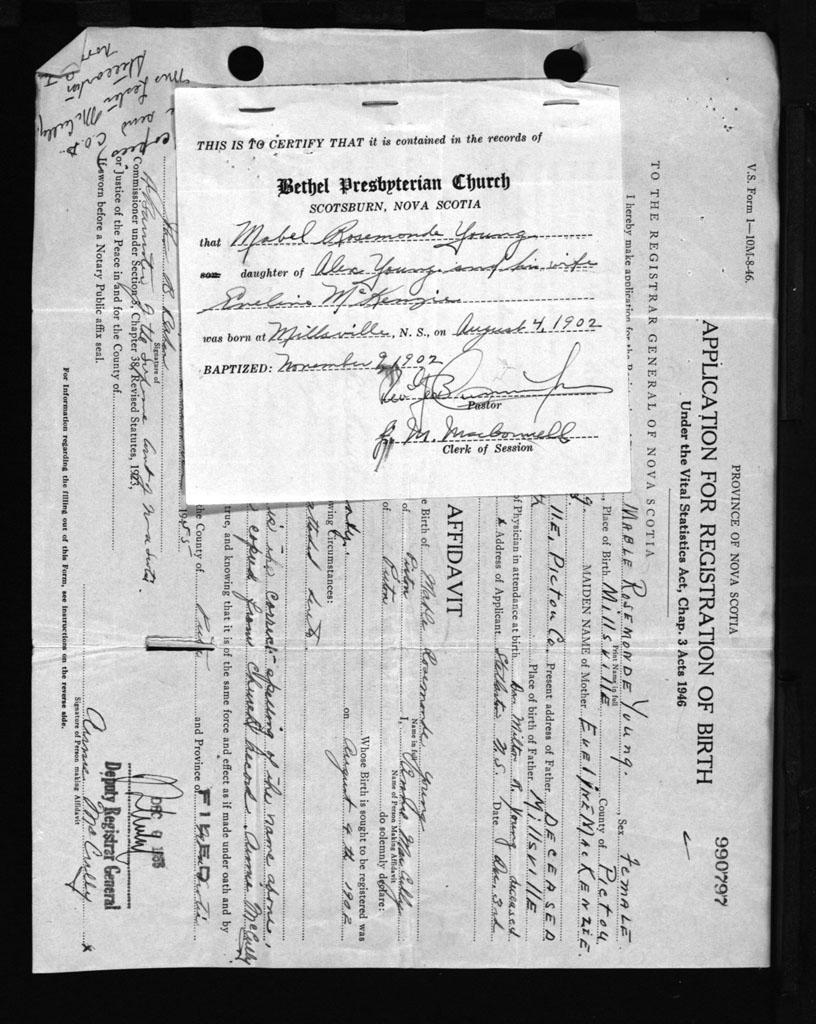 THIS IS TO CERTIFY THAT it is contained in the records of
Bethel Presbyterian Church
SCOTSBURN, NOVA SCOTIA
that Mabel Rosemonde Young
son daughter of Alex Young and his wife
Eveline McKenzie
was born at Millsville, N. S., on August 4, 1902
BAPTIZED: November 9, 1902
Rev
Pastor
J. M. MacConnell
Clerk of Session
V.S. Form 1—10M-8-46.
PROVINCE OF NOVA SCOTIA
990797
APPLICATION FOR REGISTRATION OF BIRTH
Under the Vital Statistics Act, Chap. 3 Acts 1946
TO THE REGISTRAR GENERAL OF NOVA SCOTIA
I hereby make application for the
MABLE ROSEMONDE YOUNG. Sex Female
Print Name in full
Place of Birth Millsville County of Pictou
MAIDEN NAME of Mother EVELYNE MACKENZIE
Place of birth of Father Millsville
lle, Pictou Co. Present address of Father DECEASED
of Physician in attendance at birth Dr. Milton R. Young deceased
Address of Applicant Stellarton N.S. Date Dec. 3rd
AFFIDAVIT
e Birth of Mable Rosemonde Young
Name in full
of Pictou I, Annie McCully
Name of Person Making Affidavit
of Pictou do solemnly declare:
Whose Birth is sought to be registered was
on August 4th 1902
wing Circumstances:
attached
is the correct spelling of the name above,
copied from church record. Annie McCully
true, and knowing that it is of the same force and effect as if made under oath and by
the County of Pictou and Province of
FILED
1955
DEC 9 1955
Deputy Registrar General
Annie McCully x
Signature of Person making Affidavit
Signature of
A Barrister of the Supreme Court of Nova Scotia
Commissioner under Section 3, Chapter 38, Revised Statutes, 1923,
or Justice of the Peace in and for the County of
If sworn before a Notary Public affix seal.
For information regarding the filling out of this Form, see instructions on the reverse side.
send copies C.O.D.
Mrs Lester McCully
Stellarton